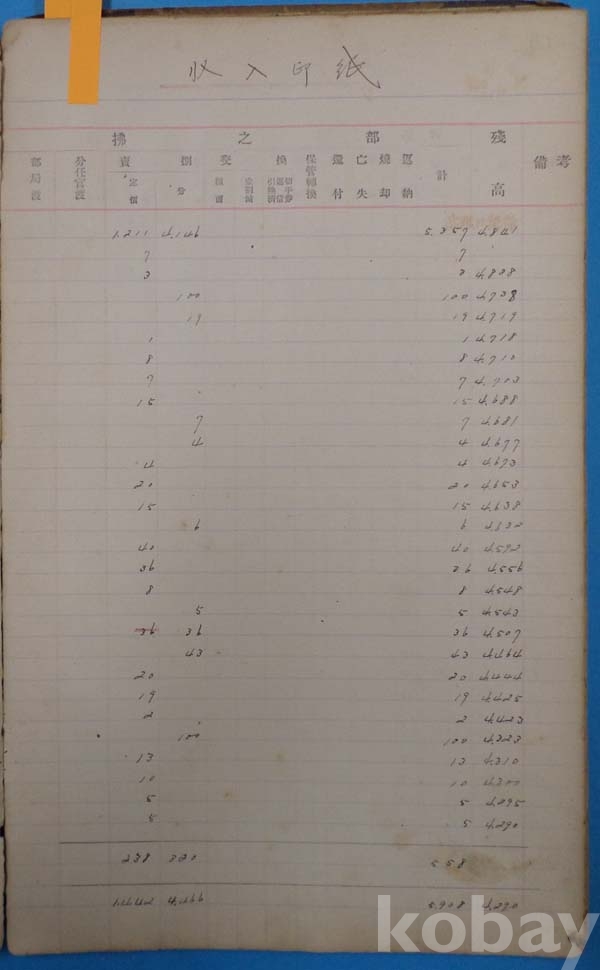 收入印紙
拂 之 部 殘
部局渡 分任官渡 賣 捌 交 換 保管轉換 還付 亡失 燒却 返納 計 高 備考
定價 分
1.211 4.146 5.357 4.841
7 7
3 3 4.838
100 100 4.738
19 19 4.719
1 1 4.718
8 8 4.710
7 7 4.703
15 15 4.688
7 7 4.681
4 4 4.677
4 4 4.673
20 20 4.653
15 15 4.638
6 6 4.632
40 40 4.592
36 36 4.556
8 8 4.548
5 5 4.543
36 36 36 4.507
43 43 4.464
20 20 4.444
19 19 4.425
2 2 4.423
100 100 4.323
13 13 4.310
10 10 4.300
5 5 4.295
5 5 4.290
238 320 558
4.290
kobay